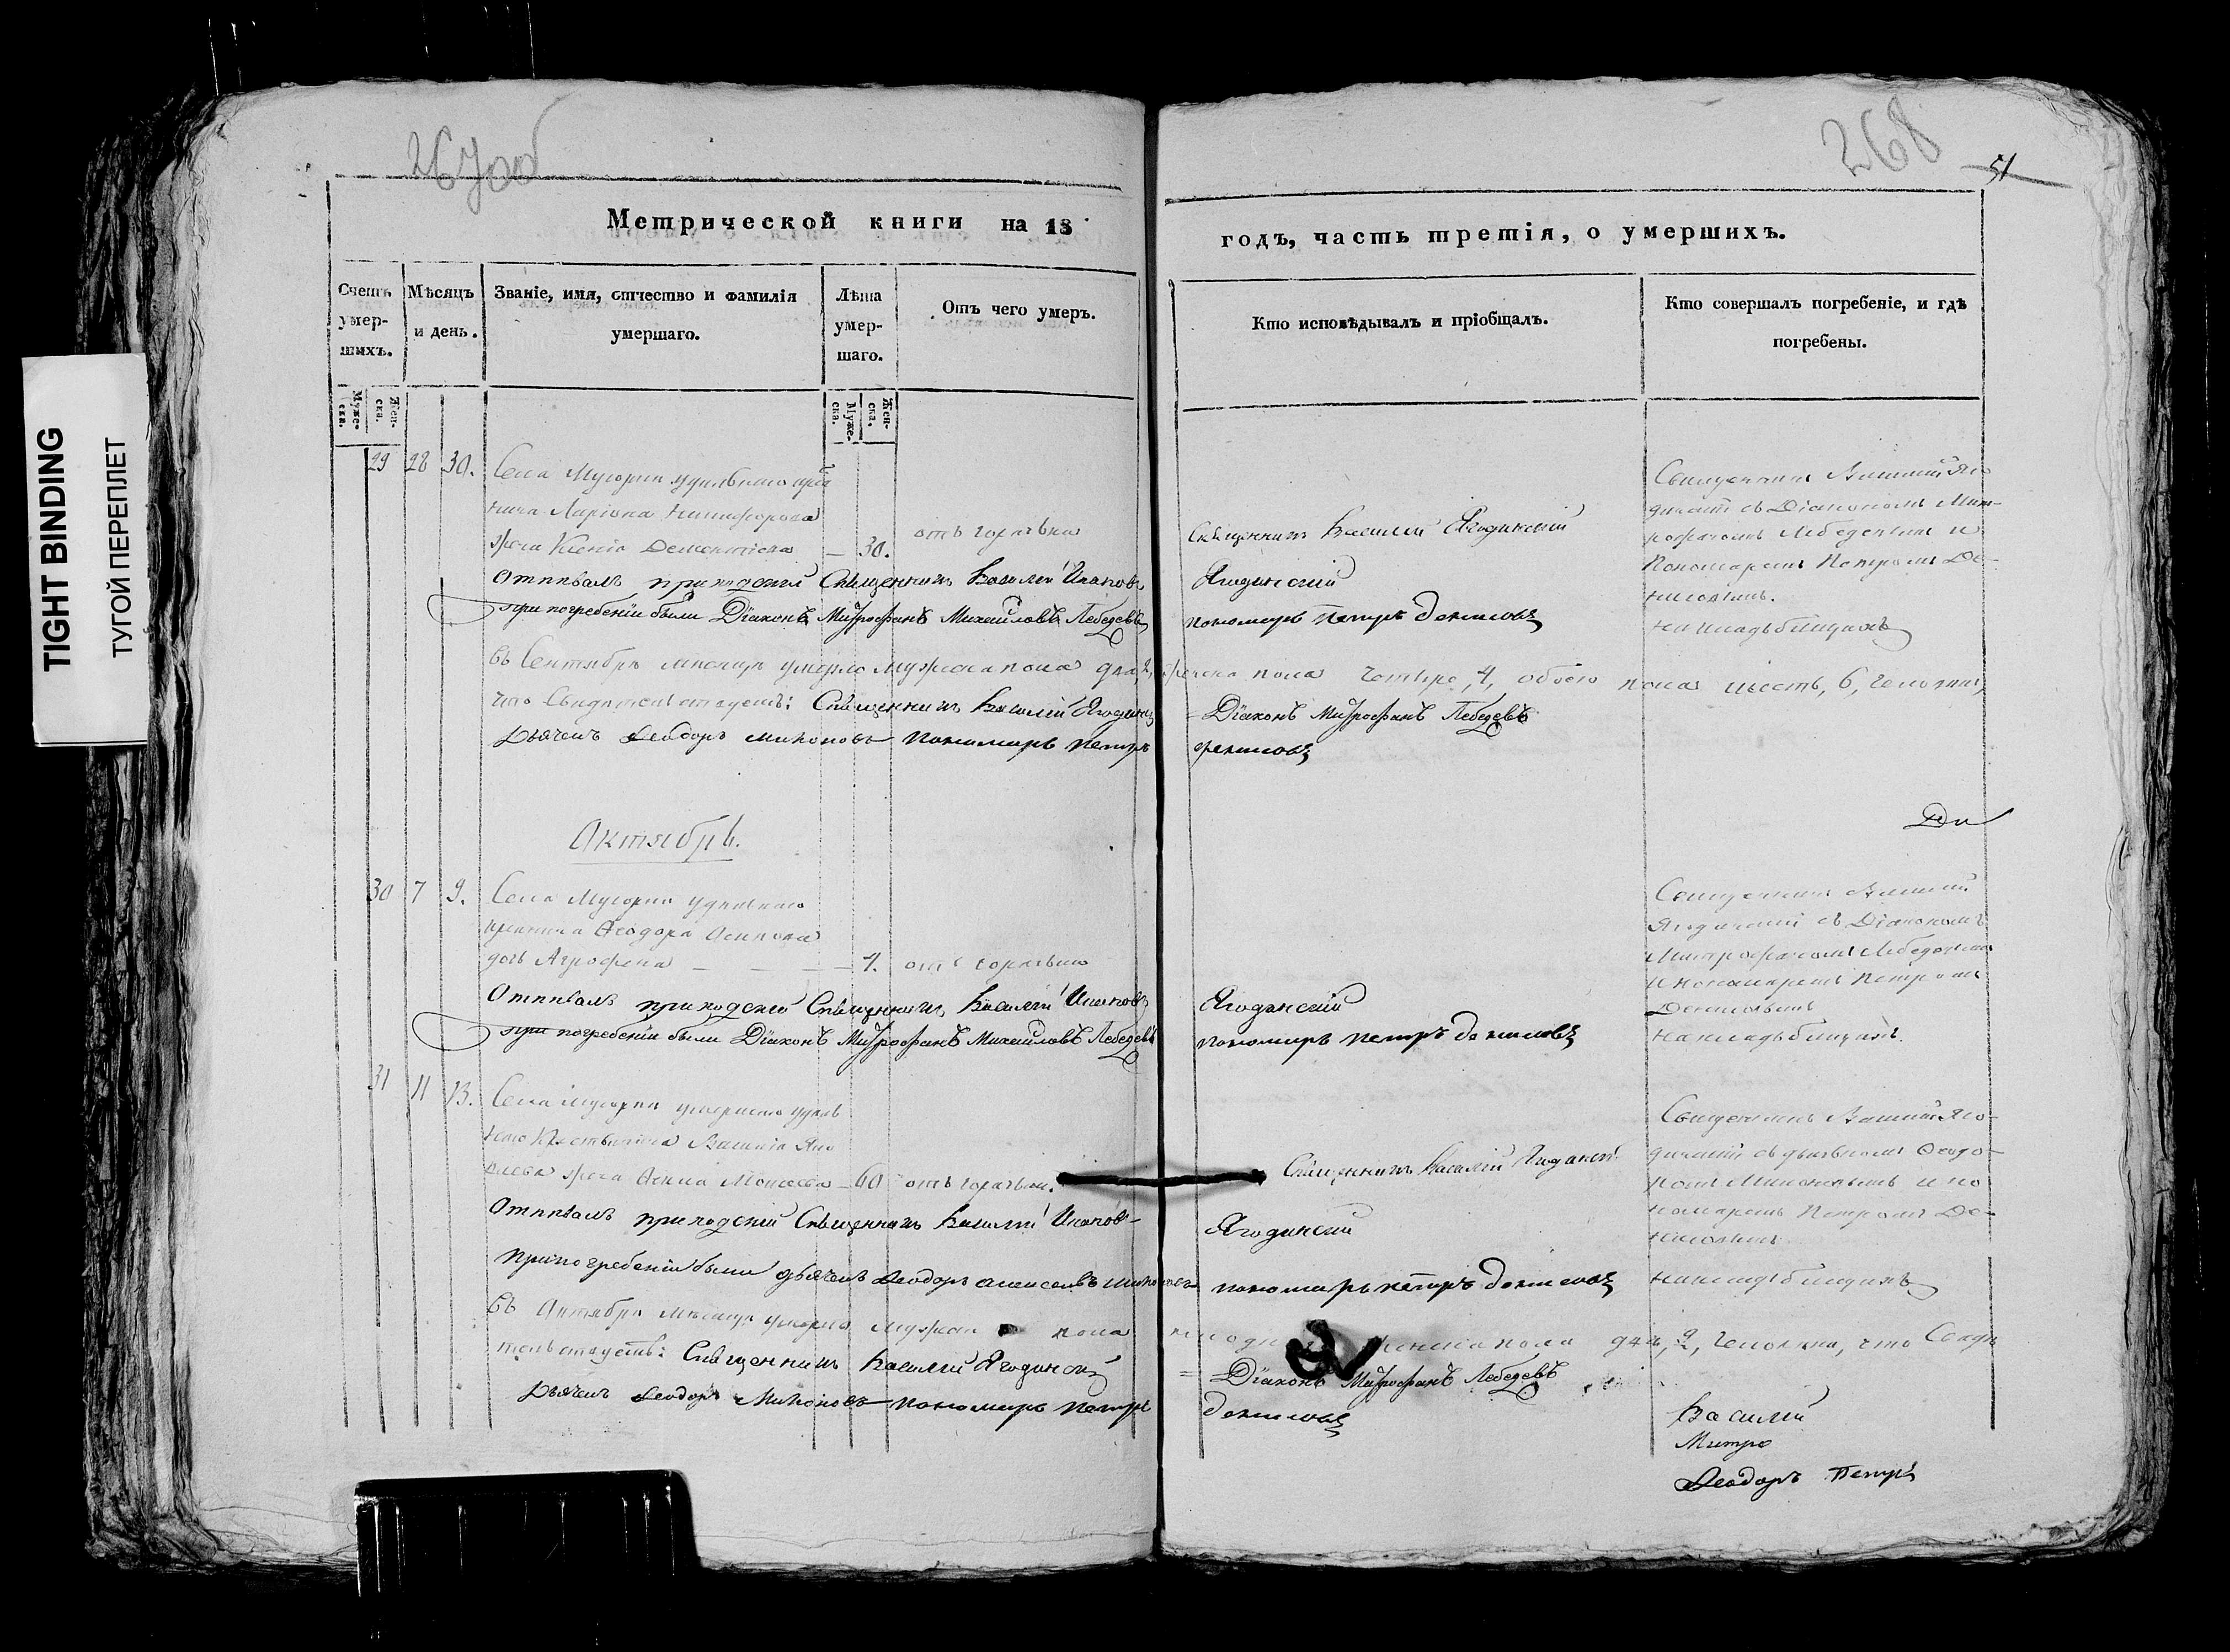 TIGHT BINDING
ТУГОЙ ПЕРЕПЛЕТ
267об
268
51
Метрической книги на 18
годъ, часть третія, о умершихъ.
Счетъ умер-
шихъ.
Мѣсяцъ
и день.
Званіе, имя, отчество и фамилія
умершаго.
Лѣта
умер-
шаго.
Отъ чего умеръ.
Кто исповѣдывалъ и пріобщалъ.
Кто совершалъ погребеніе, и гдѣ
погребены.
Муже-
ска.
Жен-
ска.
Муже-
ска.
Жен-
ска.
29 28 30. Села удѣльнаго
Ларіона Никифорова
жена Ксенія Дементіева — 30. отъ горячьки
Священникъ Василій Ягодинскій
Священникъ Василій Яго-
динскій съ Діакономъ Мит-
рофаномъ Лебедевымъ и
Пономаремъ Петромъ Де-
нисовымъ.
на кладьбищахъ
Отпѣвалъ приходскій Священникъ Василій Ивановъ Ягодинскій
при погребеніи были Діаконъ Митрофанъ Михайловъ Лебедевъ пономарь петръ денисовъ
Въ Сентябрѣ месяцѣ умерло мужеска пола два, 2, женска пола четыре, 4, обоего пола шесть, 6, человѣкъ,
что Свидѣтельствуемъ: Священникъ Василій Ягодинскій = Діаконъ Митрофанъ Лебедевъ
Дьячекъ Ѳеодоръ пономарь петръ денисовъ
Октябрь.
30 7 9. Села удѣльнаго
Ѳеодора Осипова
дочь Агрофена — — — 7. отъ горячьки
Священникъ Василій
Ягодинскій съ Діакономъ
Митрофаномъ Лебедевымъ
и пономаремъ Петромъ
Денисовымъ
на кладьбищахъ.
Отпѣвалъ приходскій Священникъ Василій Ивановъ Ягодинскій
при погребеніи были Діаконъ Митрофанъ Михайловъ Лебедевъ пономарь петръ денисовъ
31 11 13. Села умершаго удѣль
наго Крестьянина Василія Яко
влева жена Моисеева — 60 отъ горячьки.
Священникъ Василій Ягодинскій
Священникъ Василій Яго-
динскій съ дьячькомъ Ѳеодо-
ромъ и по
номаремъ Петромъ Де-
нисовымъ
на кладьбищахъ
Отпѣвалъ приходскій Священникъ Василій Ивановъ Ягодинскій
при погребеніи были дьячекъ Ѳеодоръ Алексеевъ пономарь петръ денисовъ
Въ Октябрѣ мѣсяцѣ умерло мужска пола женска пола два, 2, человѣка, что Свидѣ
тельствуемъ: Священникъ Василій Ягодинскій = Діаконъ Митрофанъ Лебедевъ
Дьячекъ Ѳеодоръ пономарь петръ денисовъ
Василій
Митро
Ѳеодоръ Петръ